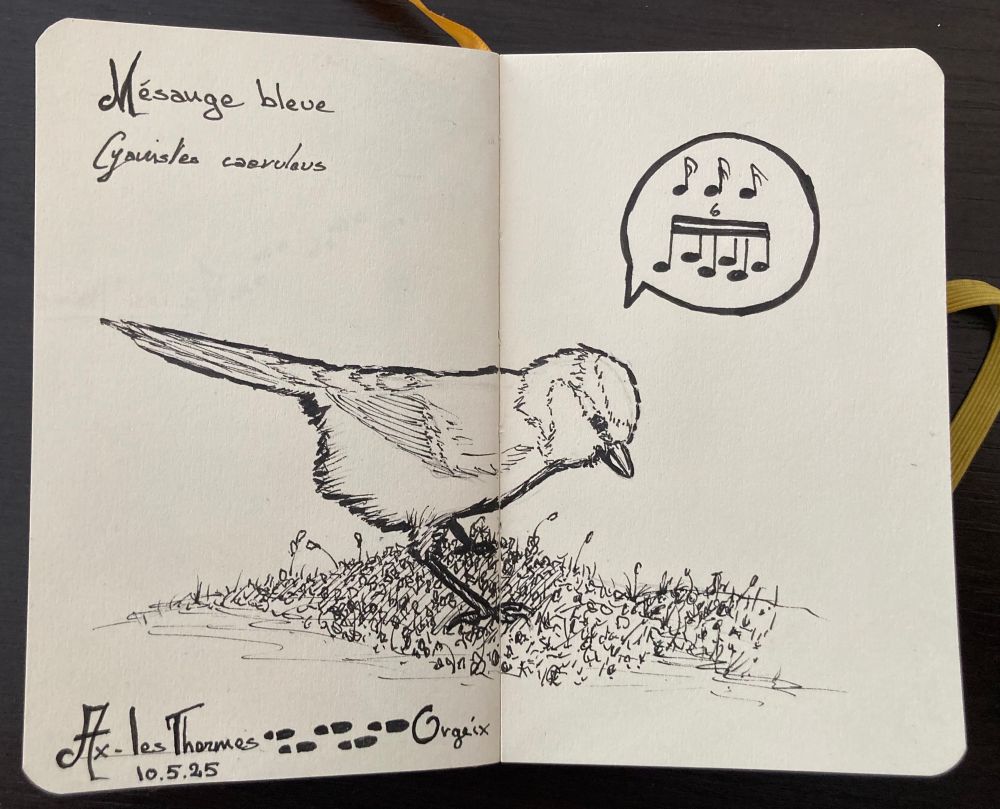 Mésange bleue
Cyanistes caeruleus
6
Ax-les Thermes Orgeix
10.5.25